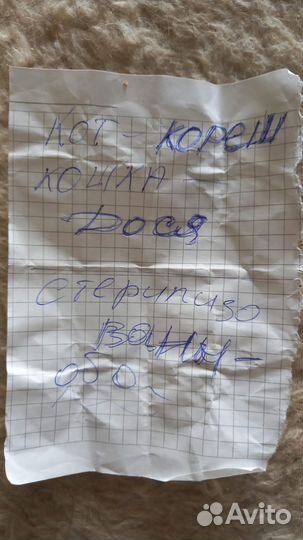 Кот - Кореш
кошка -
Дося
стерилизо
ваны -
оба
Avito